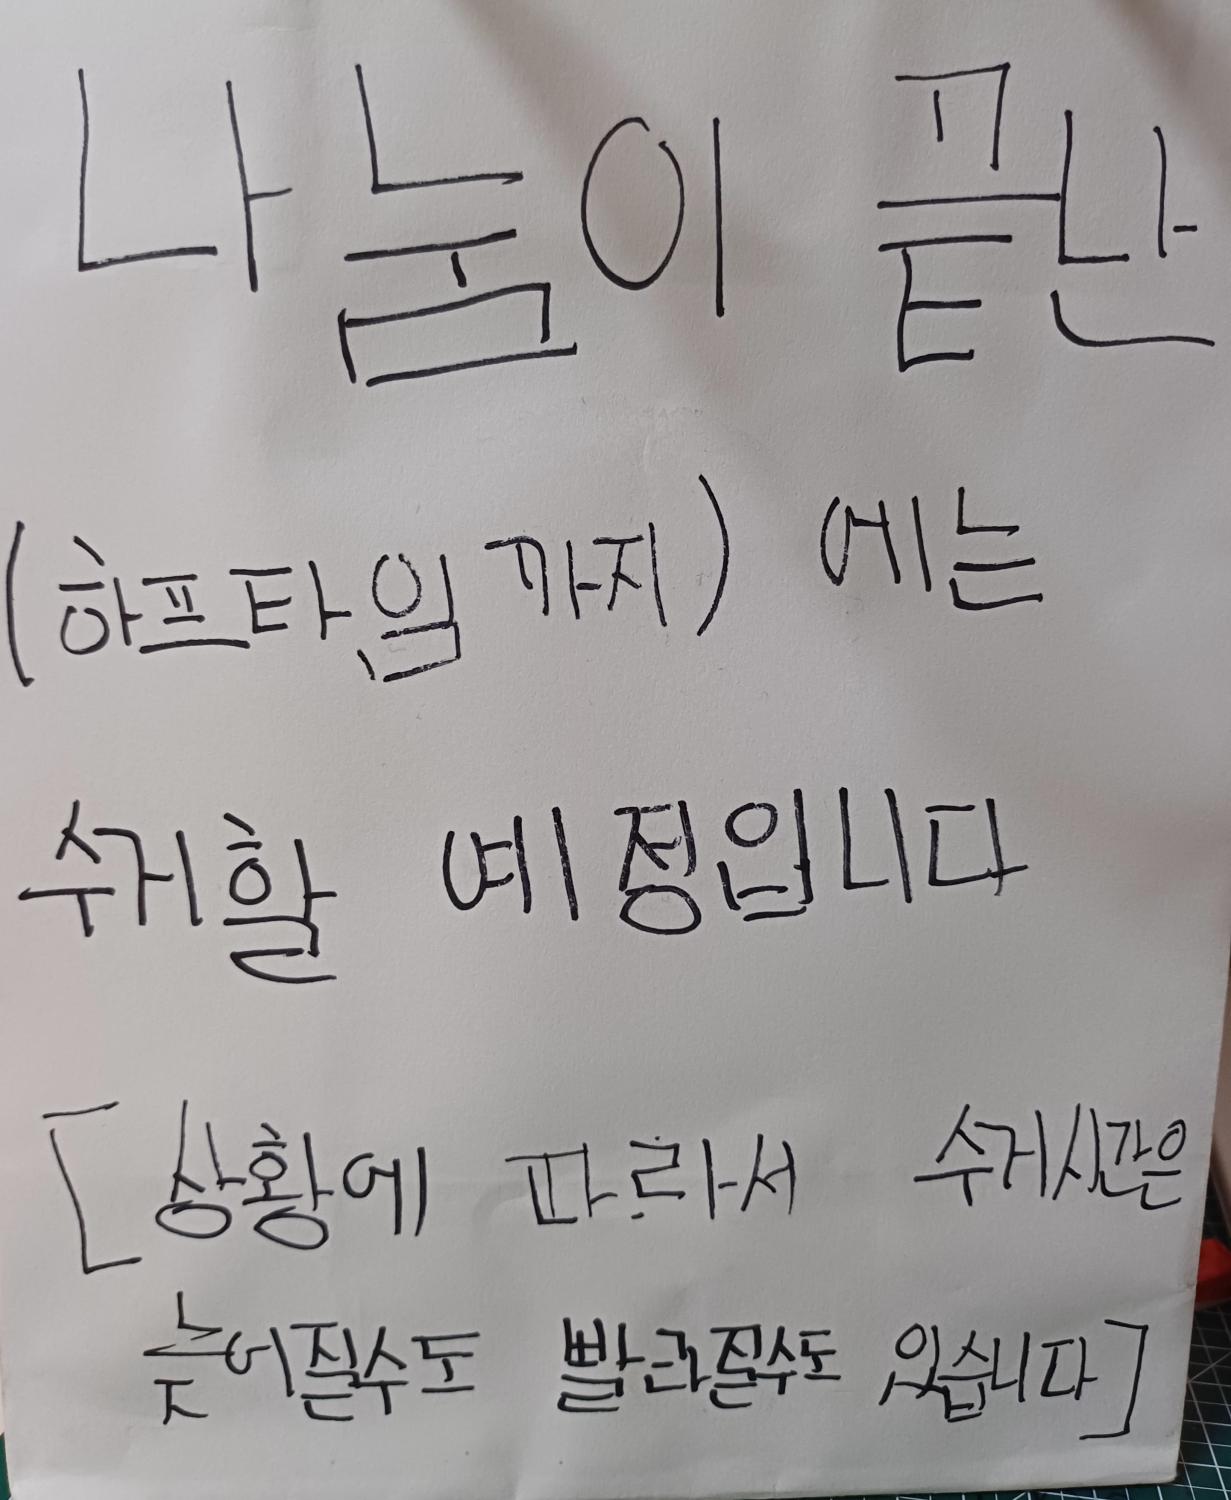 나눔이 끝난
(하프타임까지) 에는
수거할 예정입니다
[상황에 따라서 수거시간은
늦어질수도 빨라질수도 있습니다]